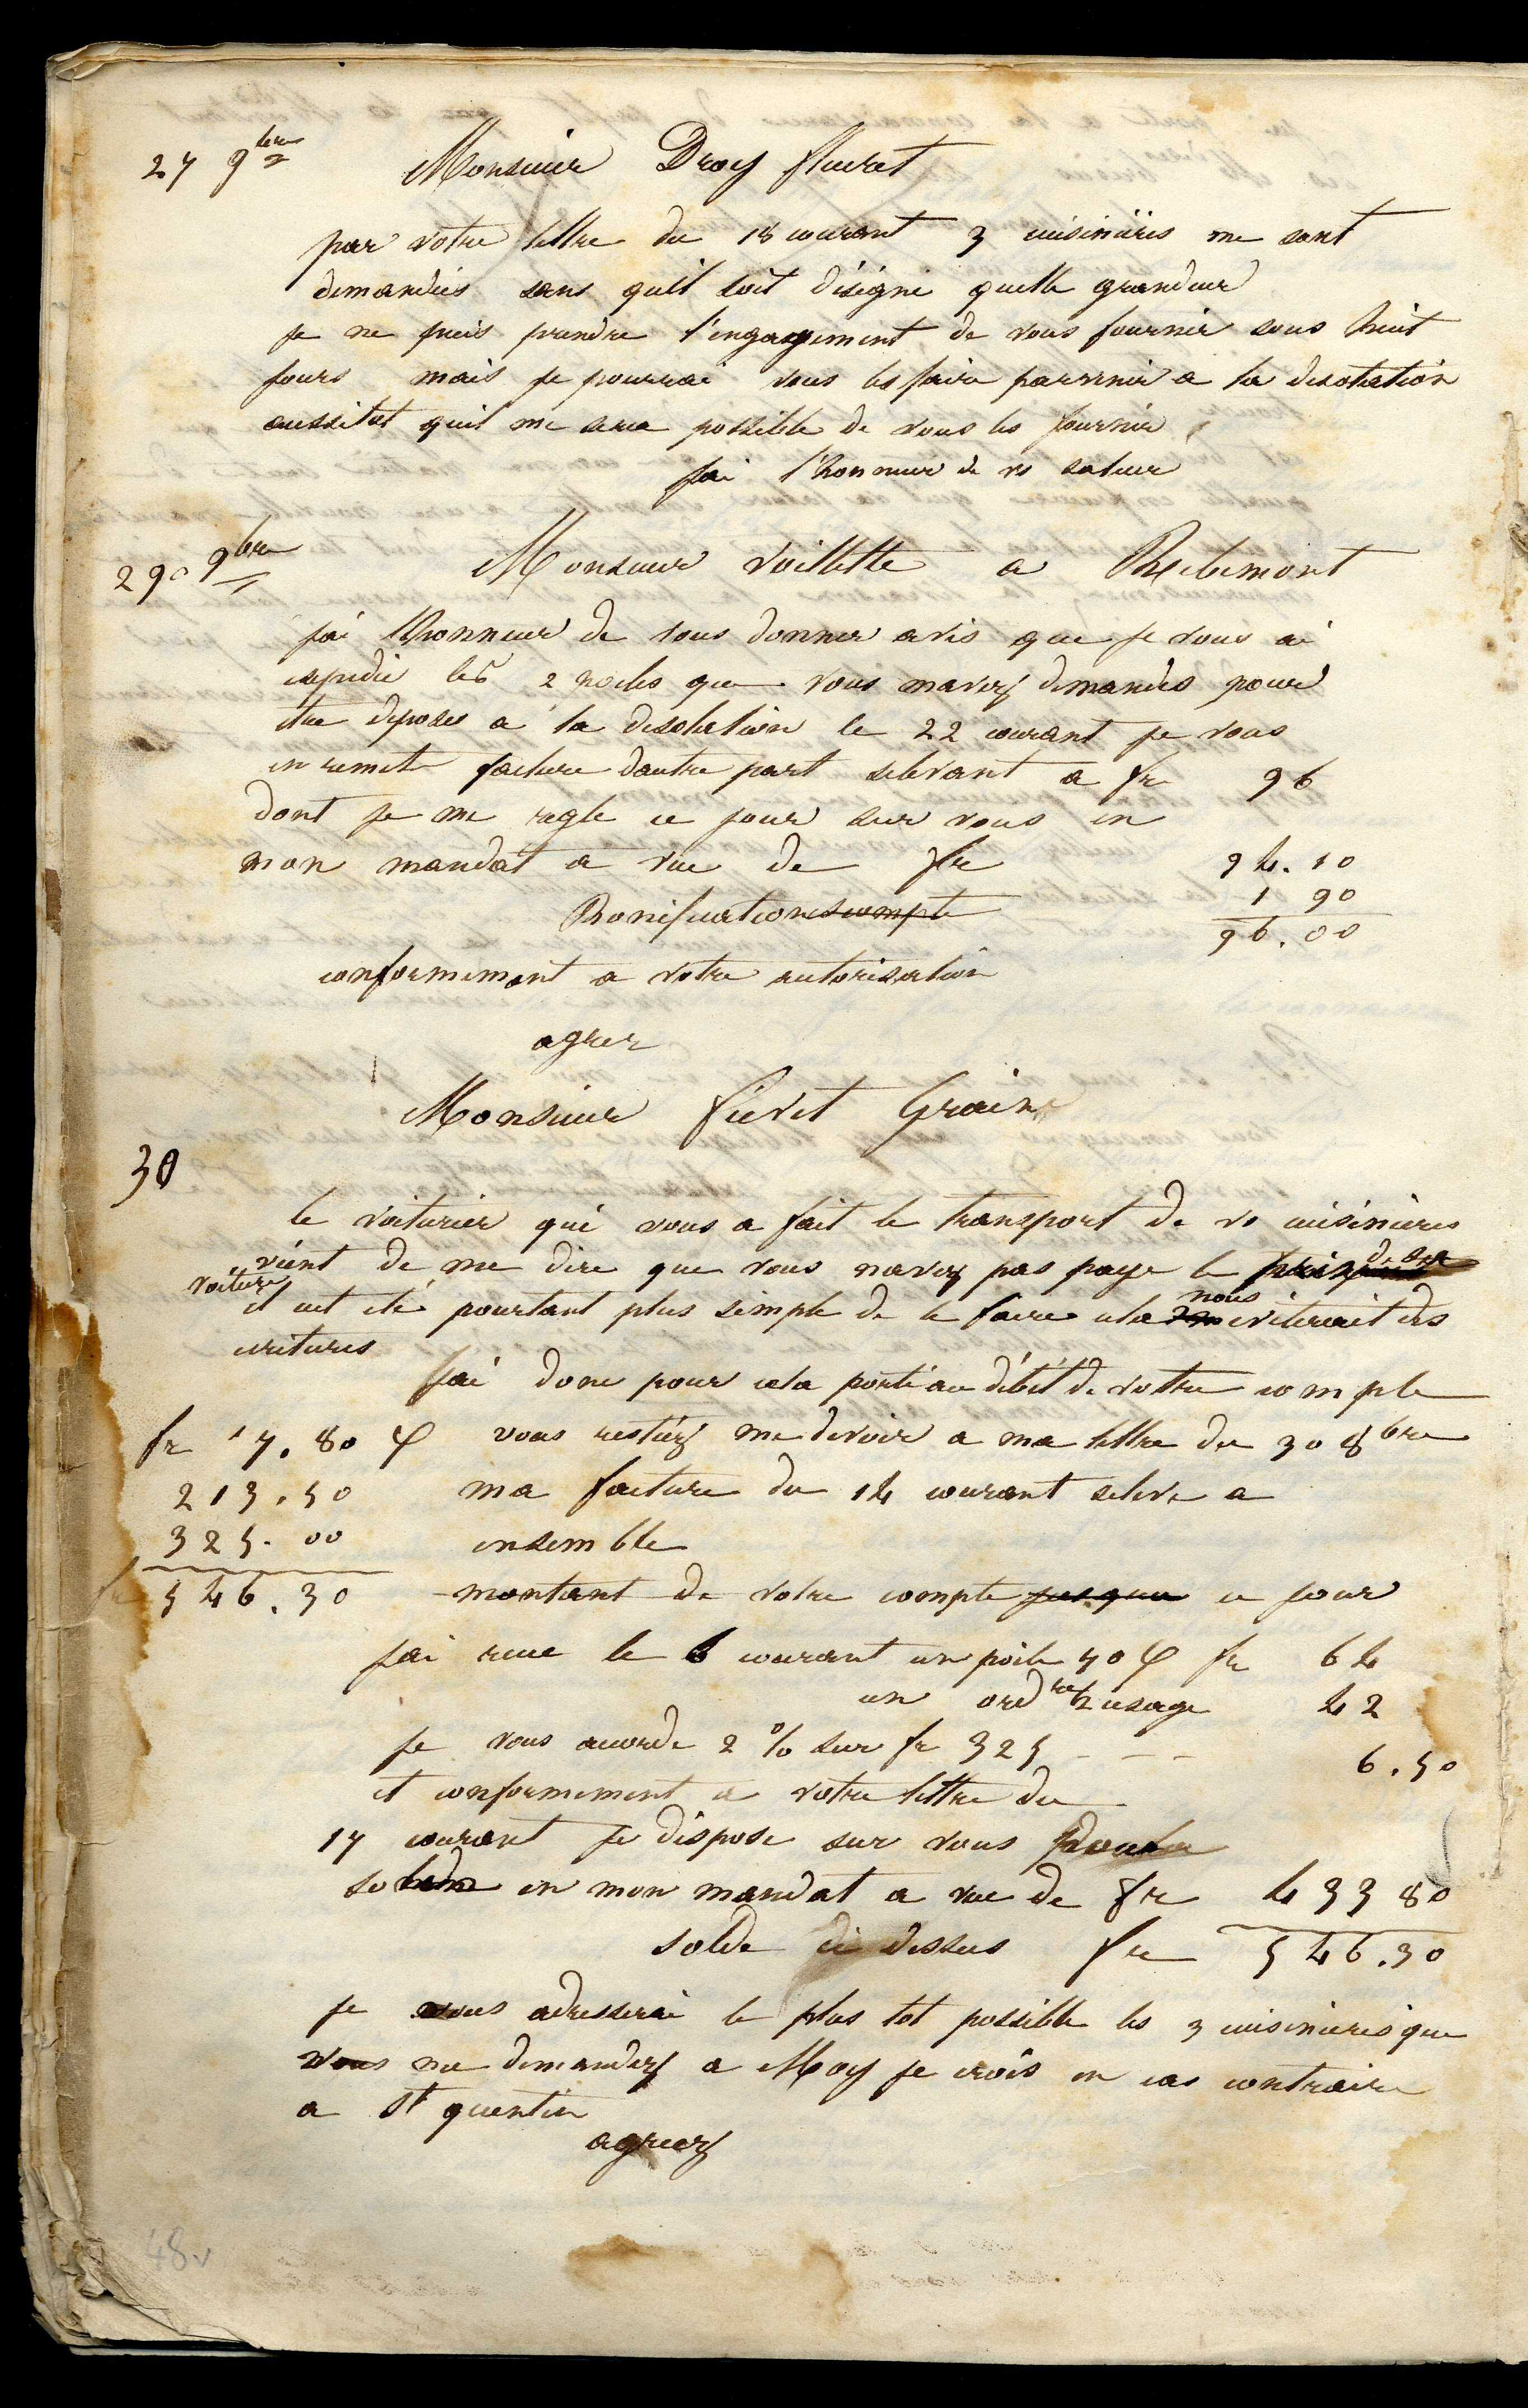 27 9bre Monsieur Droy fleurot
par votre lettre du 18 courant 3 cuisinières me sont
demandées sans quil soit désigné quelle grandeur
je ne puis prendre l'engagement de vous fournir sous huit
jours mais je pourrai vous les faire parvenir a la desolation
aussitot quil me sera possible de vous les fournir
jai l'honneur de vs saluer
29 9bre Monsieur Voillette a Ribemont
jai lhonneur de vous donner avis que je vous ai
expedié les 2 poeles que vous mavez demandés pour
etre deposés a la desolation le 22 courant je vous
en remets facture dautre part selevant a fr 96
dont je me regle ce jour sur vous en
mon mandat a vue de fr 94.10
Bonification escompte 1 90
96.00
conformement a votre autorisation
agreez
Monsieur fievet Grain
30
le voiturier qui vous a fait le transport de vs cuisinieres
vient de me dire que vous navez pas payé le prix de sa
voiture il eut été pourtant plus simple de le faire cela nous eviterait des
ecritures
Jai donc pour cela porté au débit de votre compte
fr 17.80 vous restiez me devoir a ma lettre du 30 8bre
213.50 ma facture du 14 courant seleve a
325.00 ensemble
fr 546.30 montant de votre compte jusqua ce jour
jai recu le 6 courant un poile 70 fr 64
un ordre usage 42
je vous accorde 2 % sur fr 325 - - - 6.50
et conformement a votre lettre du
17 courant je dispose sur vous pour
solde en mon mandat a vue de fr 433 80
solde ci dessus fr 546.30
je vous adresserai le plus tot possible les 3 cuisinieres que
vous me demandez a Moy je crois en cas contraire
a St quentin
agreez
48.v